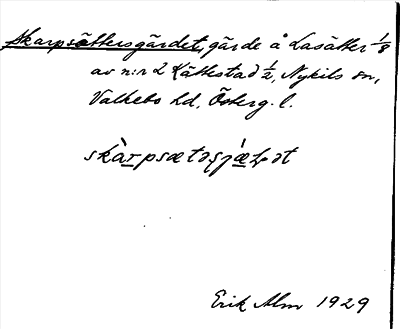 Skarpsättersgärdet, gärde å Lasätter 1/8
av n:r 2 Kättestad 1/2, Nykils sn,
Valkebo hd, Österg. l.
Erik Alm 1929